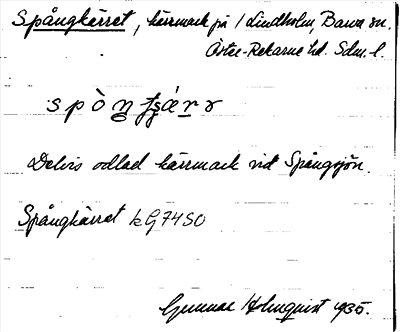 Spångkärret, kärrmark på / Lindholm, Barva sn.
Öster-Rekarne hd. Sdm. l.
Delvis odlad kärrmark vid Spångsjön.
Spångkärret kG74SO
Gunnar Holmquist 1935.